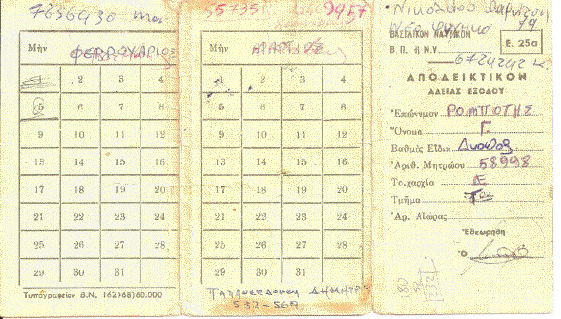 7656430
Μήν ΦΕΒΡΟΥΑΡΙΟΣ
1 2 3 4
5 6 7 8
9 10 11 12
13 14 15 16
17 18 19 20
21 22 23 24
25 26 27 28
29 30 31
Τυπογραφείον Β.Ν. 162)68)60.000
55735 9957
Μήν ΜΑΡΤΙΟΣ
1 2 3 4
5 6 7 8
9 10 11 12
13 14 15 16
17 18 19 20
21 22 23 24
25 26 27 28
29 30 31
532-569
Νικολάου
ΒΑΣΙΛΙΚΟΝ ΝΑΥΤΙΚΟΝ
Β Π. Ν.Υ.
Ε. 25α
6724242 κ.
ΑΠΟΔΕΙΚΤΙΚΟΝ
ΑΔΕΙΑΣ ΕΞΟΔΟΥ
Ἐπώνυμον ΡΟΜΠΟΤΗΣ
Ὄνομα Γ.
Βαθμός Εἰδικ. Δίοπος
Ἀριθ. Μητρώου 58998
Το.χαρχία
Τμῆμα
Ἀρ. Αἰώρας
Ἐθεωρήθη
Ὁ